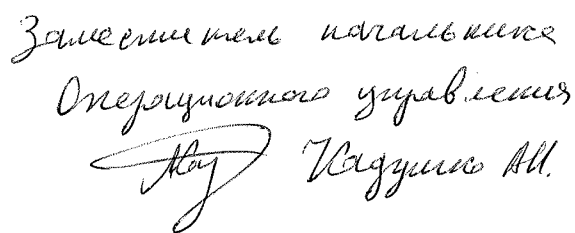 Заместитель начальника
Операционного управления
Кадушко А.И.